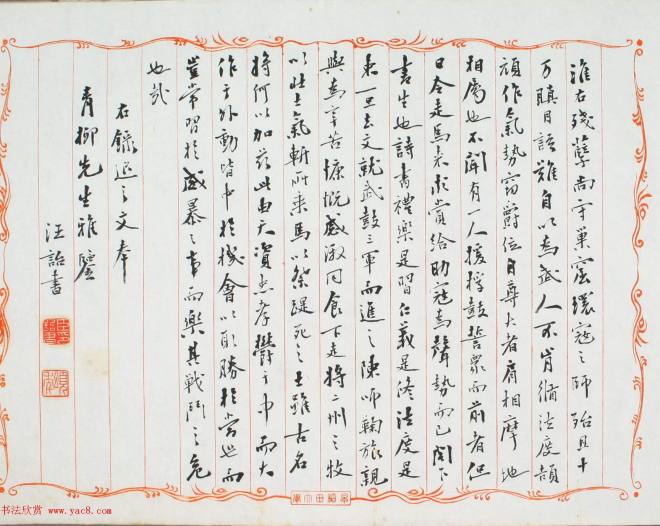 淮右殘孽尚守巢窟環寇之師殆且十
万瞋目語難自以為武人不肯循法度頡
頏作氣勢竊爵位自尊大者肩相摩地
相屬也不聞有一人援桴鼓誓衆而前者但
日令走馬來求賞給助寇為聲勢而已閣下
書生也詩書禮樂是習仁義是修法度是
束一旦去文就武鼓三軍而進之陳師鞠旅親
與為辛苦慷慨感激同食下走將二州之牧
以壯士氣斬所乘馬以祭踶死之士雖古名
將何以加茲此由天資忠孝鬱于中而大
作于外動皆中於機會以取勝於當世而
豈常習於威暴之事而樂其戰鬥之危
也哉
右錄退之文奉
青柳先生雅鑒
汪詒書
书法欣赏 www.yac8.com